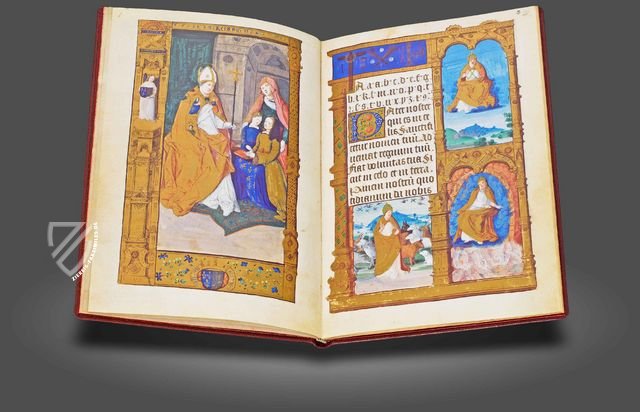 A a b c d e f g
h i k l m n o p q r
s t v u x y z
Pater noster
qui es in ce
lis Sanctifi
cetur nomen tuū Ad
ueniat regnum tuū
fiat voluntas tua Si
cut in celo et in terra
Panem nostrū quo
tidianum da nobis
ZIEREIS-FAKSIMILES.DE